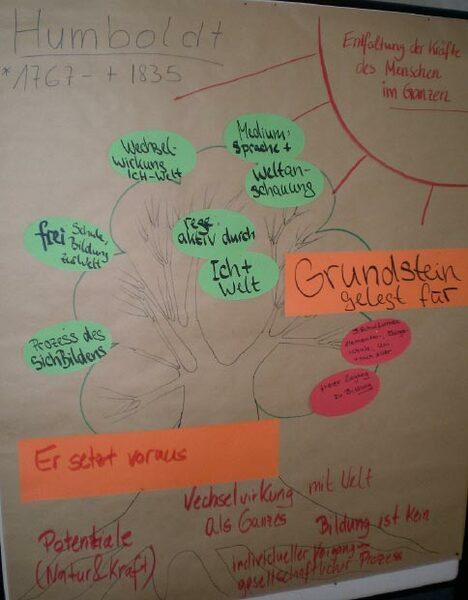 Humboldt
*1767 - + 1835
Entfaltung der Kräfte
des Menschen
im Ganzen
Wechsel-
wirkung
Ich-Welt
Medium:
Sprache +
Weltan-
schauung
frei Schule,
Bildung
zur Welt
rege,
aktiv durch
Ich +
Welt
Grundstein
gelegt für
Prozess des
sichBildens
freier Zugang
zu Bildung
Er setzt voraus
Wechselwirkung mit Welt
als Ganzes
Potentiale
(Natur & Kraft)
Bildung ist kein
individueller Vorgang→
gesellschaftlicher Prozess